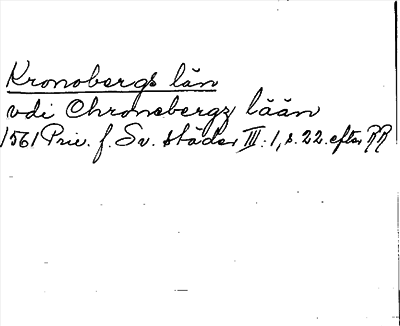 Kronobergs län
vdi Chronebergz lään
1561 Priv. f. Sv. städer III: 1, s. 22. efter RR